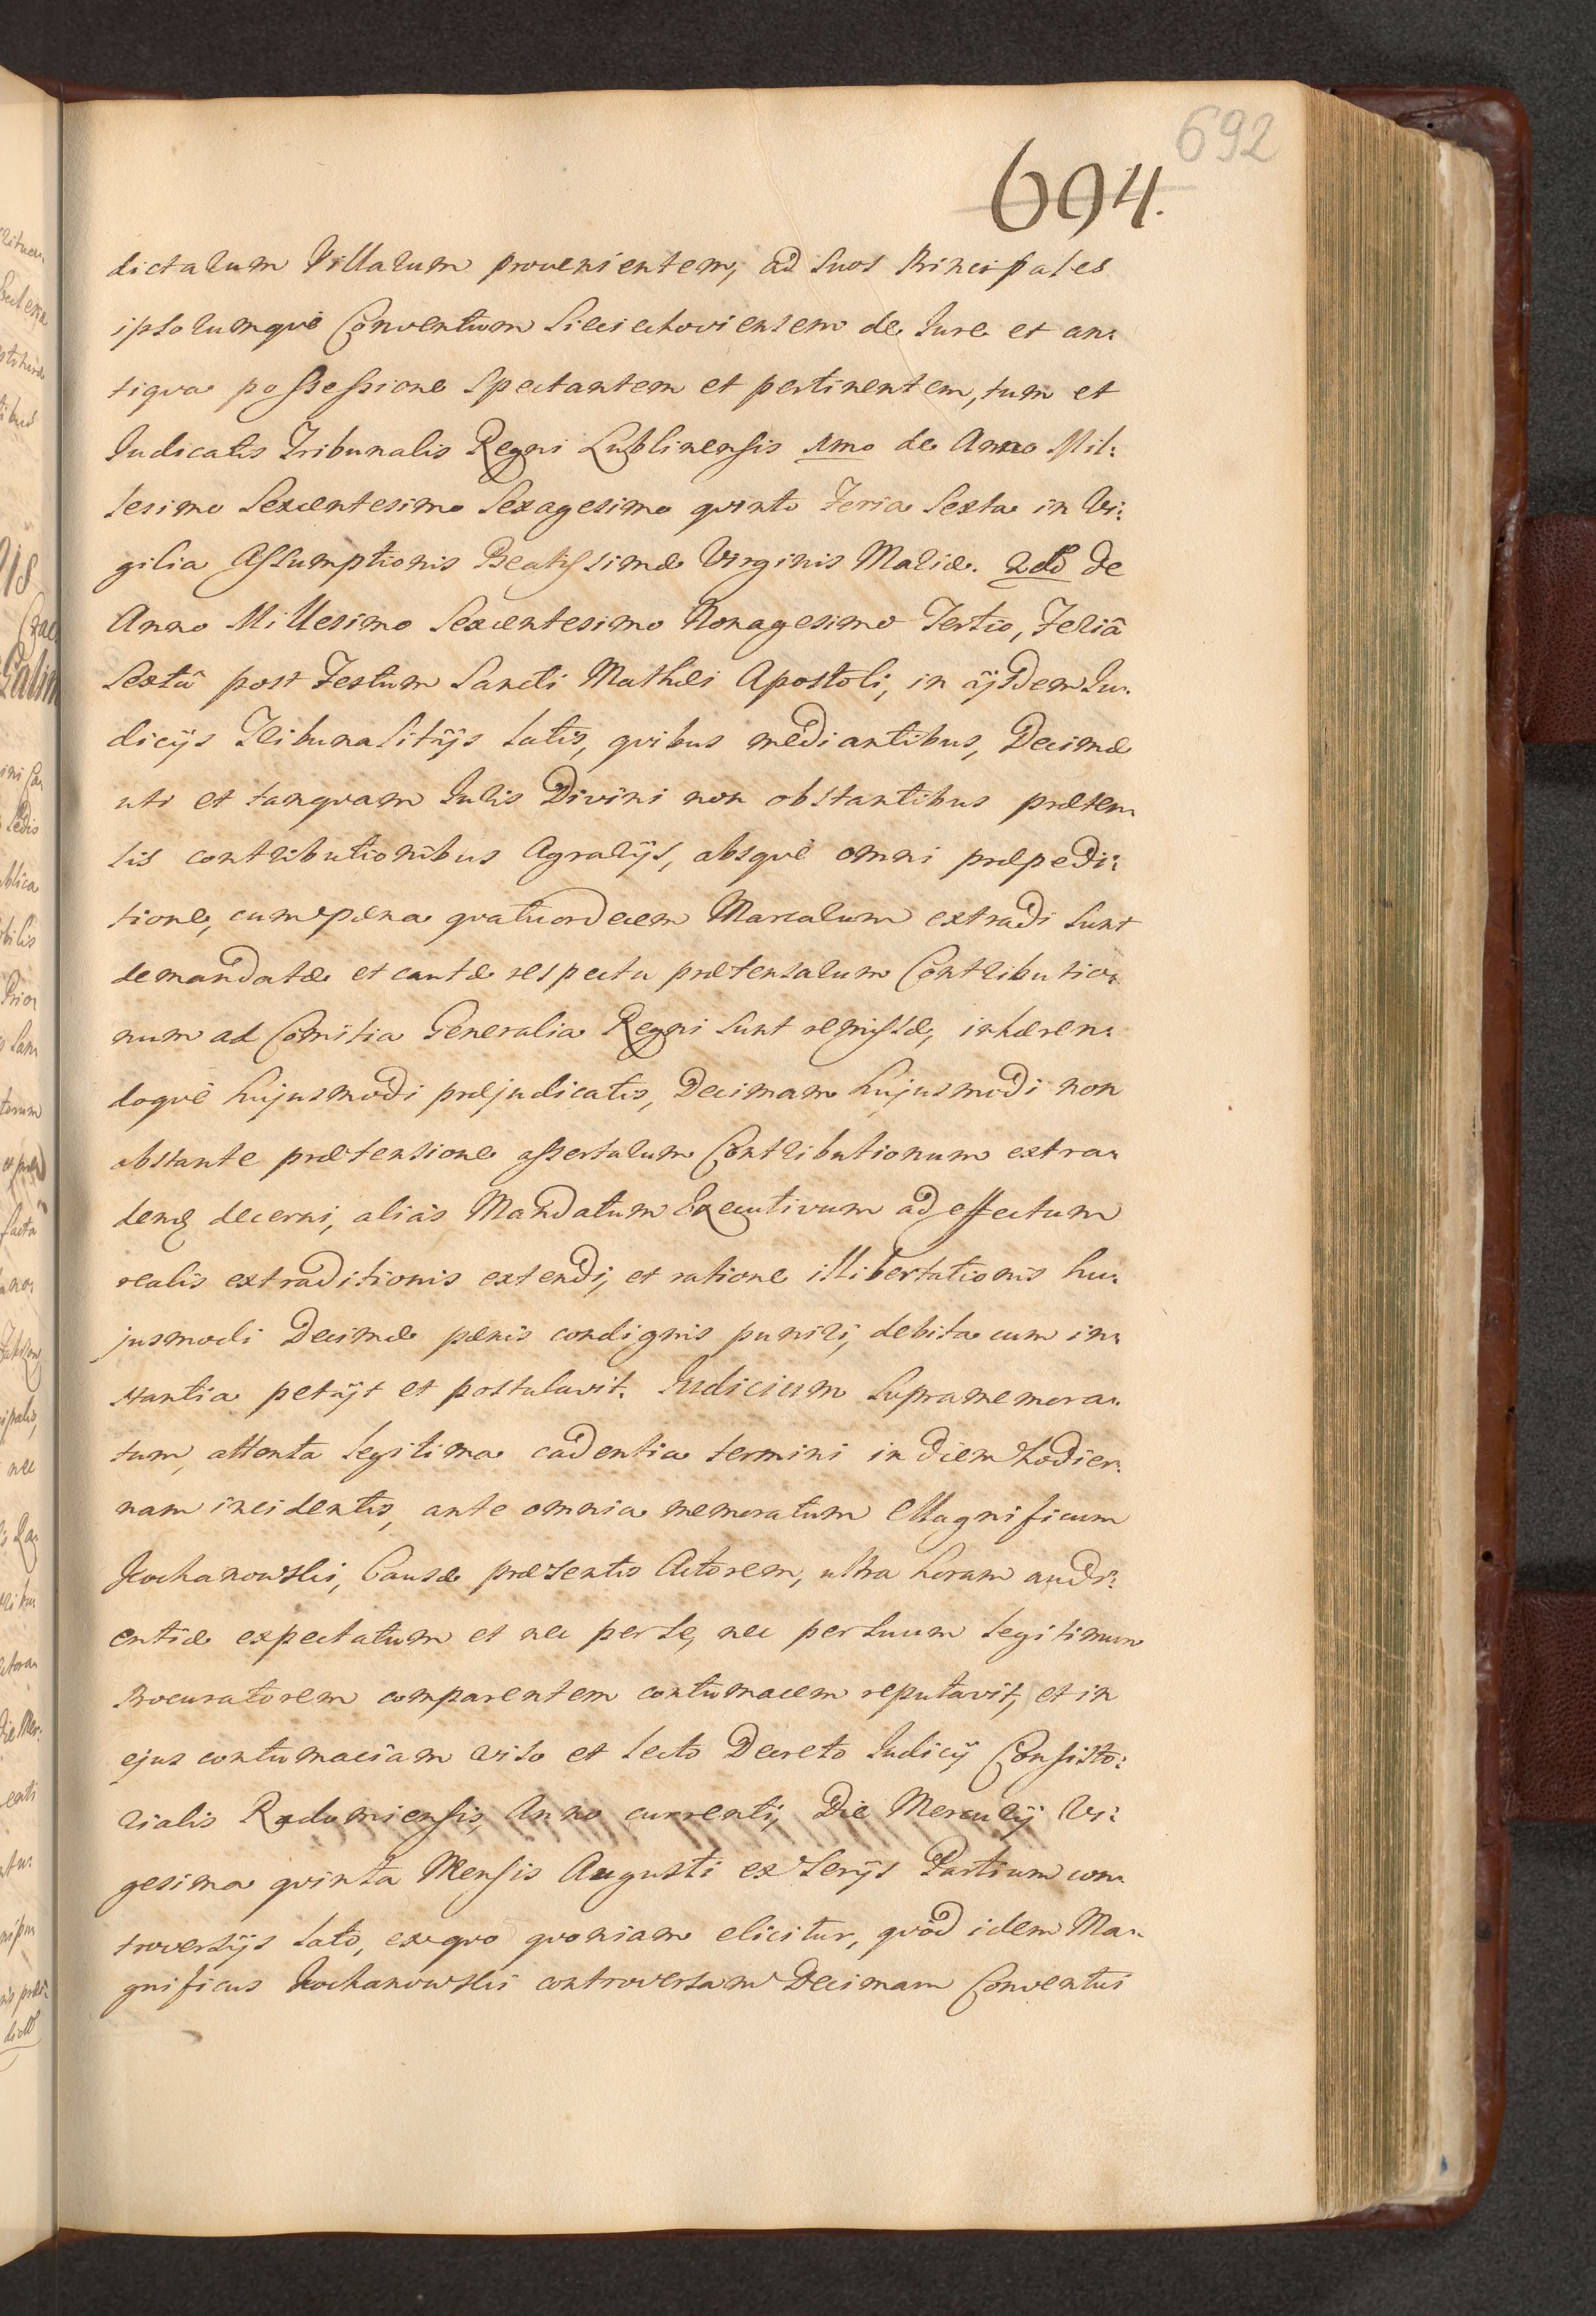 692
694.
dictarum Villarum provenientem, ad suos Principales
ipsorumqvè Conventum Sieciechoviensem de Jure et an:
tiqva possessione spectantem et pertinentem, tum et
Judicatis Tribunalis Regni Lublinensis 1mo de Anno Mil:
lesimo Sexcentesimo Sexagesimo qvinto Feria Sexta in Vi:
gilia Assumptionis Beatissimæ Virginis Mariæ. 2do de
Anno Millesimo Sexcentesimo Nonagesimo Tertio, Feriâ
Sextâ post Festum Sancti Mathæi Apostoli, in ijsdem Ju:
dicijs Tribunalitijs latis, qvibus mediantibus, Decimæ
uti et tanqvam Juris Divini non obstantibus præten:
sis contributionibus Agrarijs, absqvè omni præpedi:
tione, cum pæna qvatuordecem Marcarum extradi sunt
demandatæ et cautæ respectu prætensarum Contributio:
num ad Comitia Generalia Regni sunt remissæ, inhæren:
doqvè hujusmodi præjudicatis, Decimam hujusmodi non
obstante prætensione assertarum Contributionum extra:
dendã decerni, aliàs Mandatum Executivum ad effectum
realis extraditionis extendi, et ratione illibertationis hu:
jusmodi Decimæ pænis condignis puniri, debita cum in:
stantia petijt et postulavit. Judicium supramemora:
tum, attenta legitima cadentia termini in diem hodier:
nam incidentis, ante omnia memoratum Magnificum
Kochanowski, Causæ præsentis Actorem, ultra horam audi:
entiæ expectatum et nec per se, nec per suum legitimum
Procuratorem comparentem contumacem reputavit, et in
ejus contumaciam viso et lecto Decreto Judicij Consisto:
rialis Radomiensis, Anno currenti, Die Mercurij Vi:
gesima qvinta Mensis Augusti ex serijs Partium con:
troversijs lato, ex qvo qvoniam elicitur, qvòd idem Ma:
gnificus Kochanowski controversam Decimam Conventui